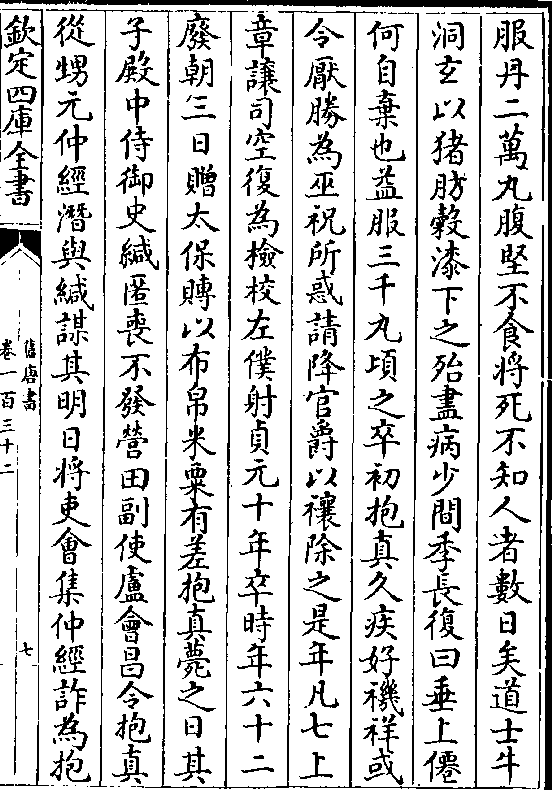 服丹二萬丸腹堅不食將死不知人者數日矣道士牛
洞玄以猪肪糓漆下之殆盡病少間季長復曰垂上僊
何自棄也益服三千丸頃之卒初抱真久疾好禨祥或
令厭勝為巫祝所惑請降官爵以禳除之是年凡七上
章讓司空復為檢校左僕射貞元十年卒時年六十二
廢朝三日贈太保賻以布帛米粟有差抱真薨之日其
子殿中侍御史緘匿喪不發營田副使盧會昌令抱真
從甥元仲經潛與緘謀其明日將吏會集仲經詐為抱
欽定四庫全書
舊唐書
卷一百三十二
七